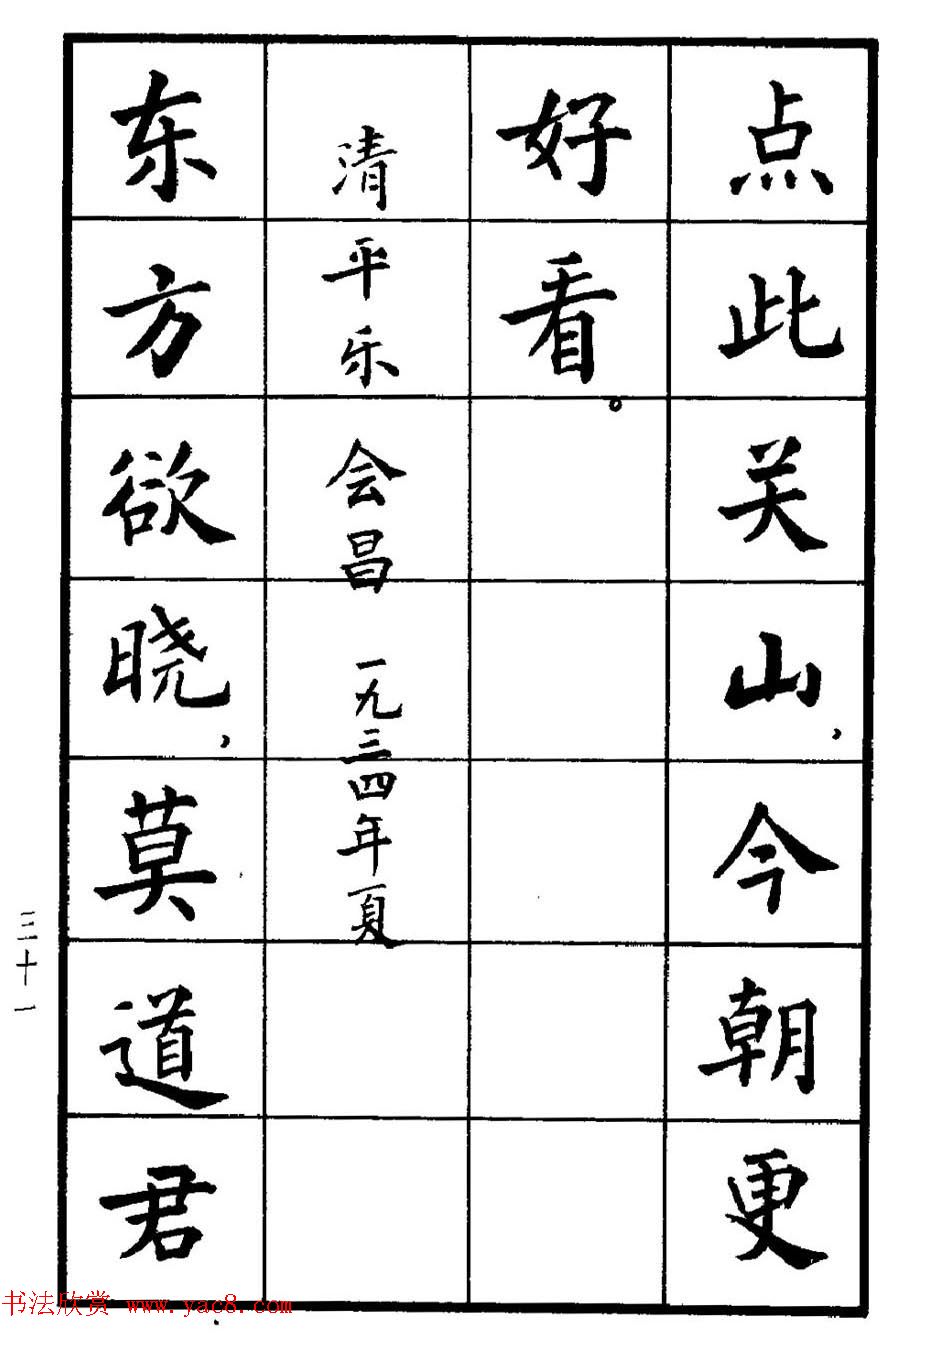 点此关山，今朝更
好看。
清平乐 会昌 一九三四年夏
东方欲晓，莫道君
三十一
书法欣赏 www.yac8.com